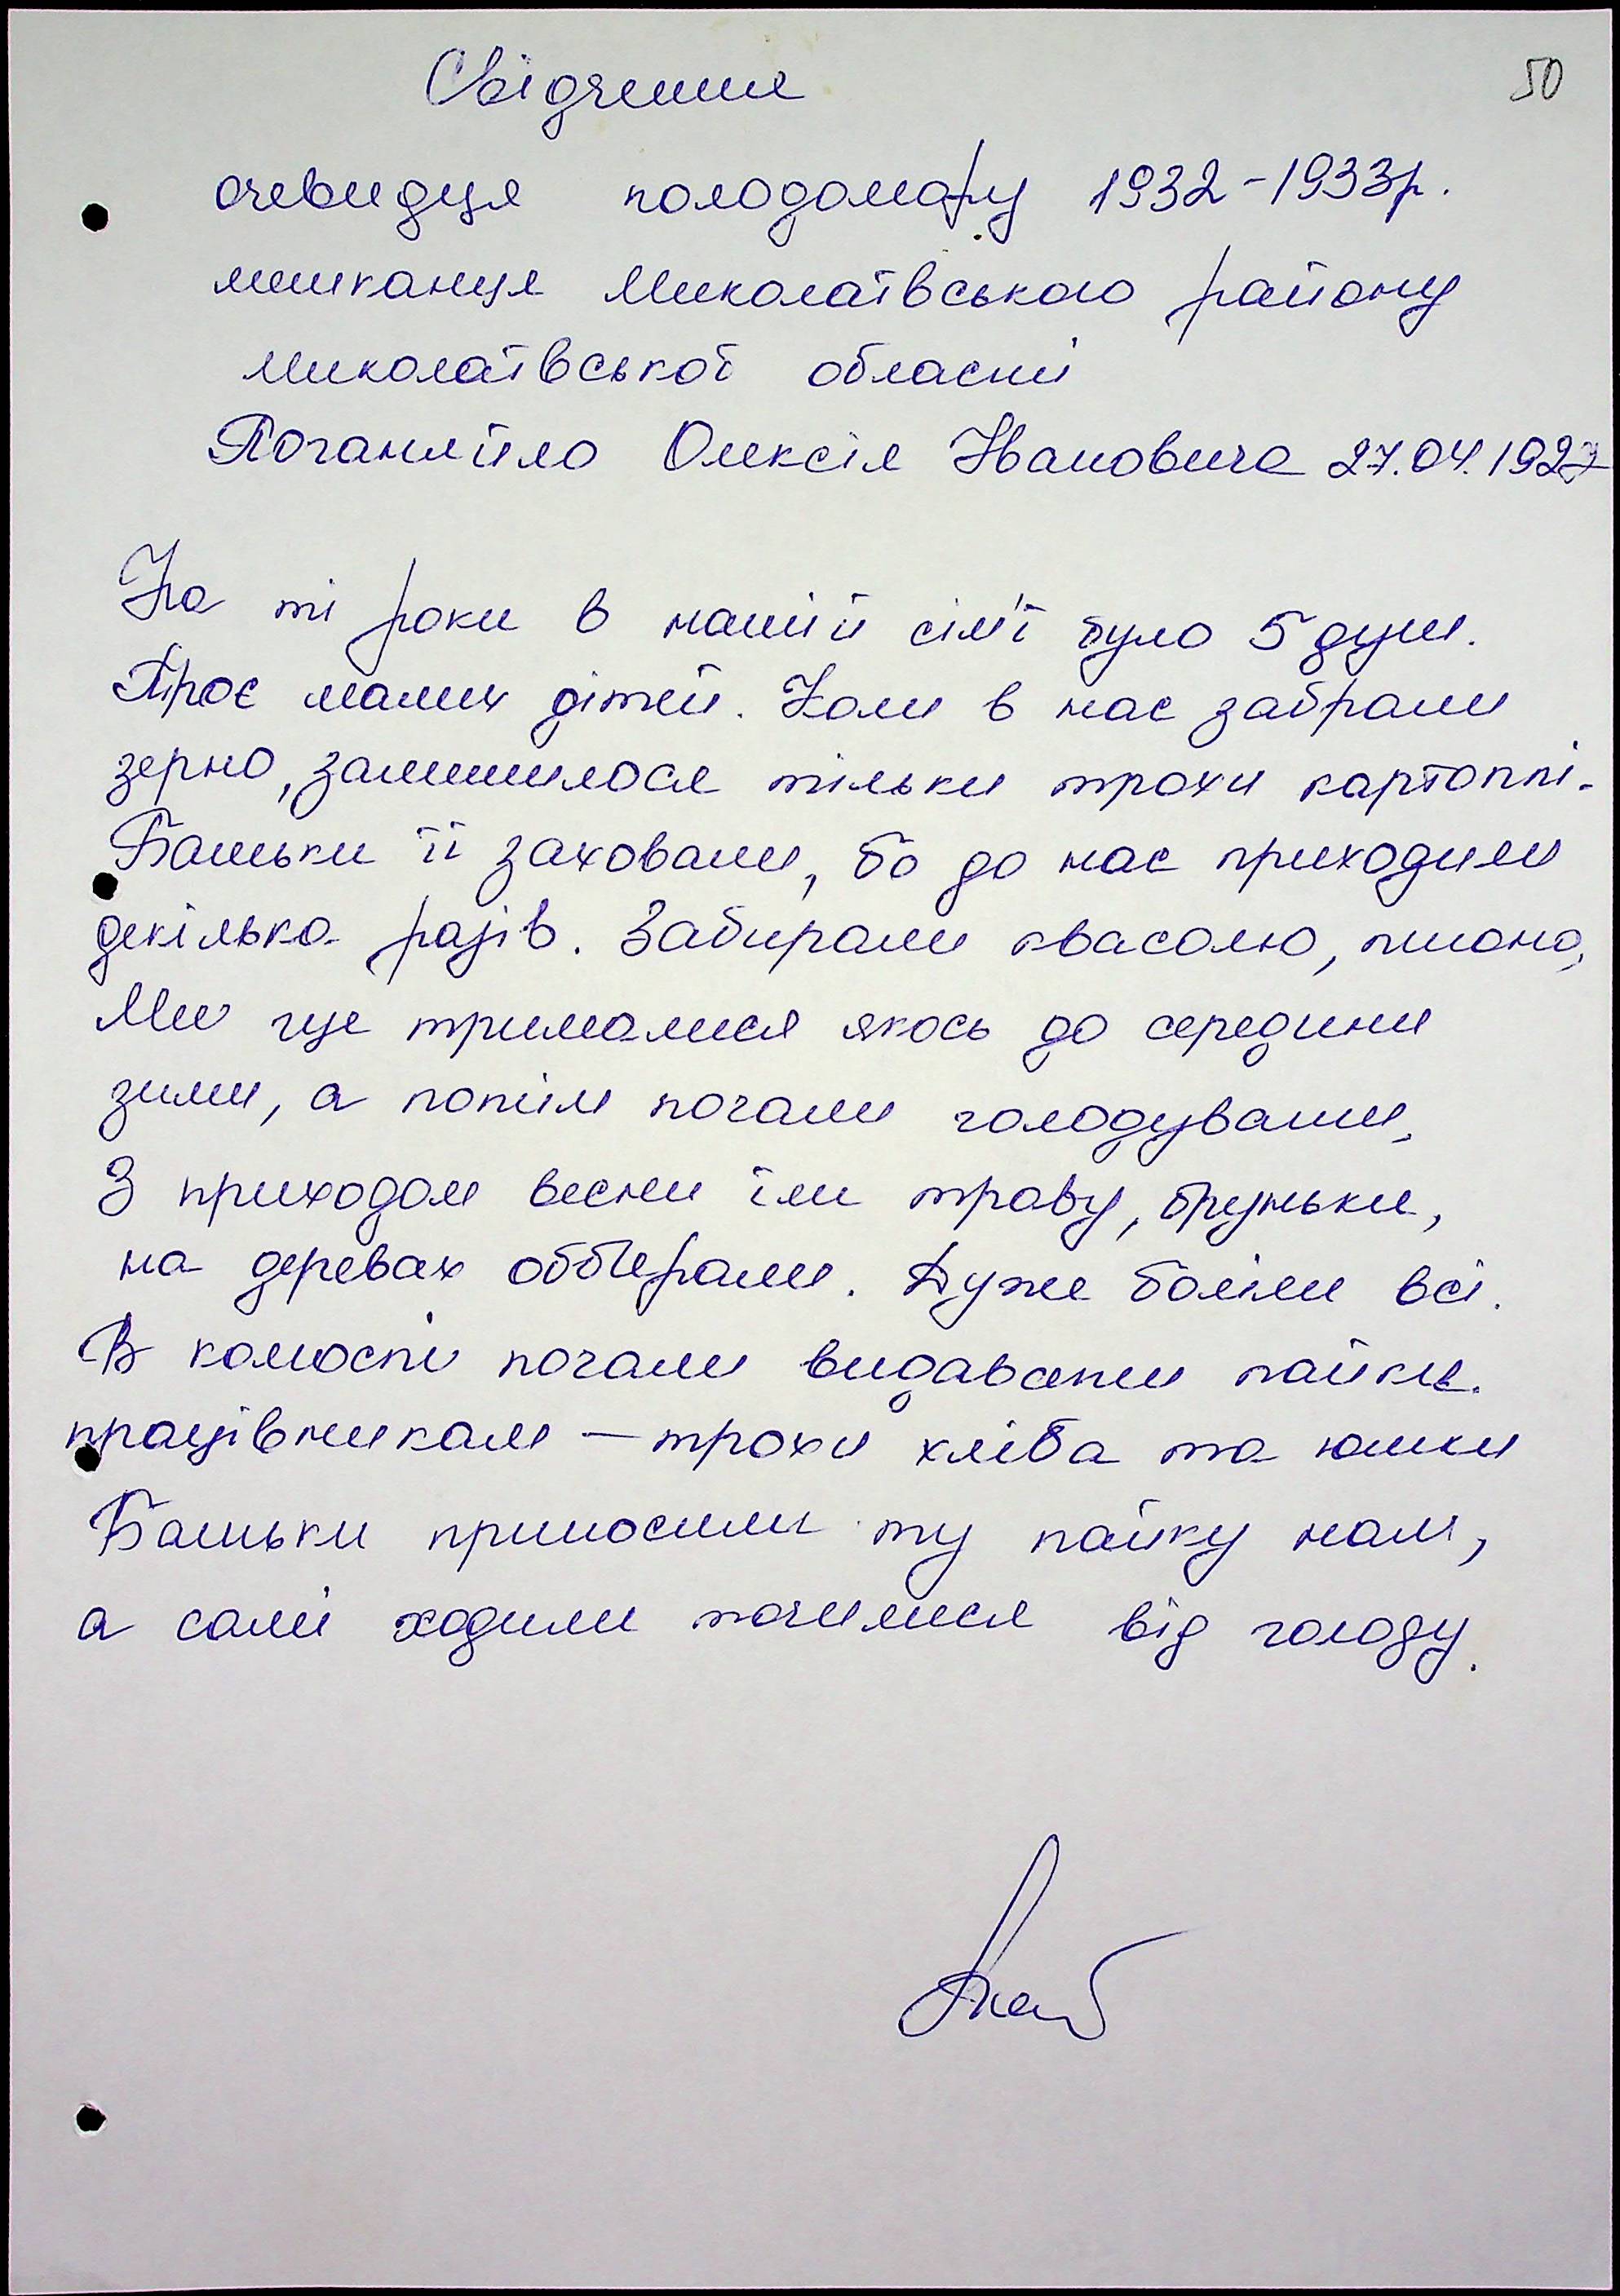 50
Свідчення
очевидця голодомору 1932-1933р.
мешканця Миколаївського району
Миколаївської області
Поганяйло Олексія Івановича 27.04.1927
На ті роки в нашій сім'ї було 5 душ.
Троє малих дітей. Коли в нас забрали
зерно, залишилося тільки трохи картоплі.
Батьки її заховали, бо до нас приходили
декілька разів. Забирали квасолю, пшоно,
Ми ще трималися якось до середини
зими, а потім почали голодувати.
З приходом весни їли траву, бруньки,
на деревах оббирали. Дуже боліли всі.
В колгоспі почали видавати пайки.
працівникам – трохи хліба та юшки
Батьки приносили ту пайку нам,
а самі ходили точилися від голоду.